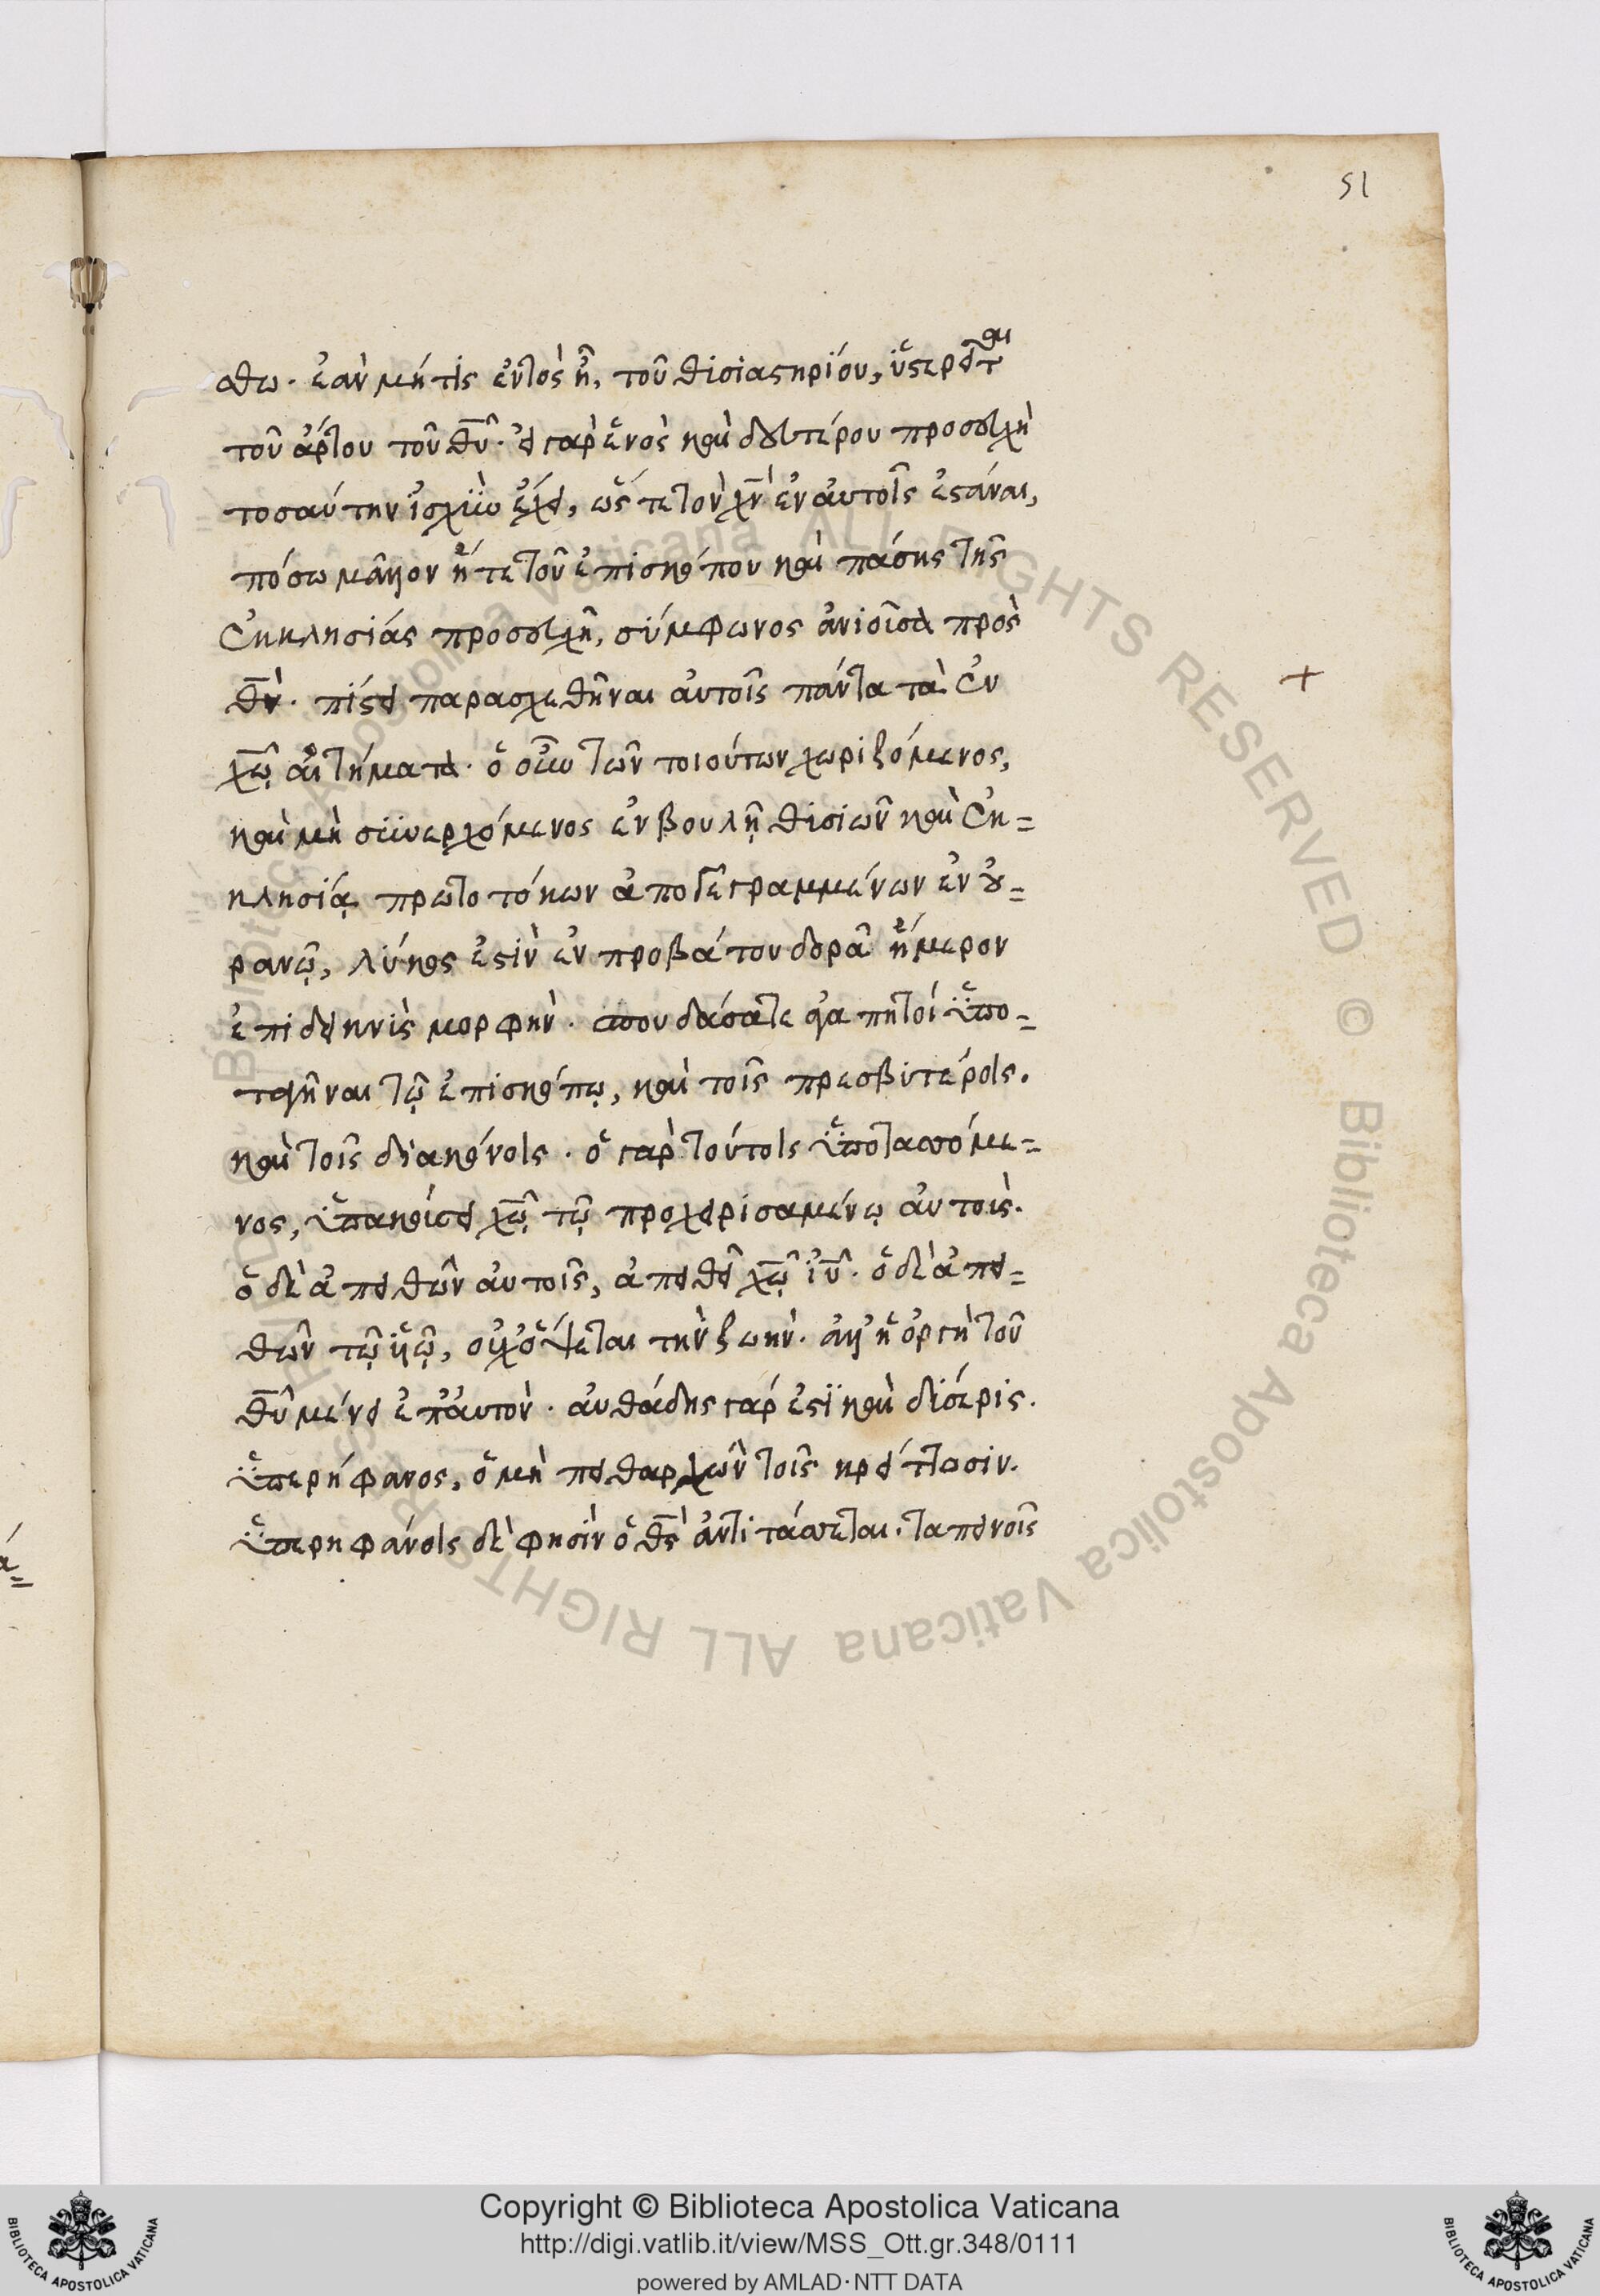 51
σθω. ἐὰν μή τις ἐντὸς ᾖ, τοῦ θυσιαστηρίου, ὑστερεῖται
τοῦ ἄρτου τοῦ θῦ. εἰ γὰρ ἑνὸς καὶ δευτέρου προσευχὴ
τοσαύτην ἰσχὺν ἔχει, ὥστε τὸν χν̄ ἐν αὐτοῖς ἑστάναι,
πόσω μᾶλλον ἥ τε τοῦ ἐπισκόπου καὶ πάσης τῆς
ἐκκλησίας προσευχῆ, σύμφωνος ἀνιοῦσα πρὸς
θν̄. πίσει παρασχεθῆναι αὐτοῖς πάντα τὰ ἐν
χῷ̄ αἰτήματα. ὁ οὖν τῶν τοιούτων χωριζόμενος,
καὶ μὴ συνερχόμενος ἐν βουλῇ θυσιῶν καὶ ἐκ=
κλησίᾳ πρωτοτόκων ἀπογεγραμμένων ἐν οὐ=
ρανῷ, λύκος ἐστὶν ἐν προβάτου δορᾶ ἥμερον
ἐπιδεικνὺς μορφήν. σπουδάσατε ἀγαπητοί ὑπο=
ταγῆναι τῷ ἐπισκόπῳ, καὶ τοῖς πρεσβυτέροις.
καὶ τοῖς διακόνοις. ὁ γὰρ τούτοις ὑποτασσόμε=
νος, ὑπακούει χῷ̄ τῷ προχειρισαμένῳ αὐτούς.
ὁ δὲ ἀπειθῶν αὐτοῖς, ἀπειθεῖ χῷ̄ ἰῦ. ὁ δὲ ἀπει=
θῶν τῷ ὑῷ, οὐκ ὄψεται τὴν ζωήν. ἀλλ' ἡ ὀργὴ τοῦ
θῦ μένει ἐπ' αὐτόν. αὐθάδης γάρ ἐστι καὶ δύσερις.
ὑπερήφανος, ὁ μὴ πειθαρχῶν τοῖς κρείττοσιν.
ὑπερηφάνοις δὲ φησὶν ὁ θς̄ ἀντιτάσσεται. ταπεινοῖς
Copyright © Biblioteca Apostolica Vaticana
http://digi.vatlib.it/view/MSS_Ott.gr.348/0111
powered by AMLAD·NTT DATA